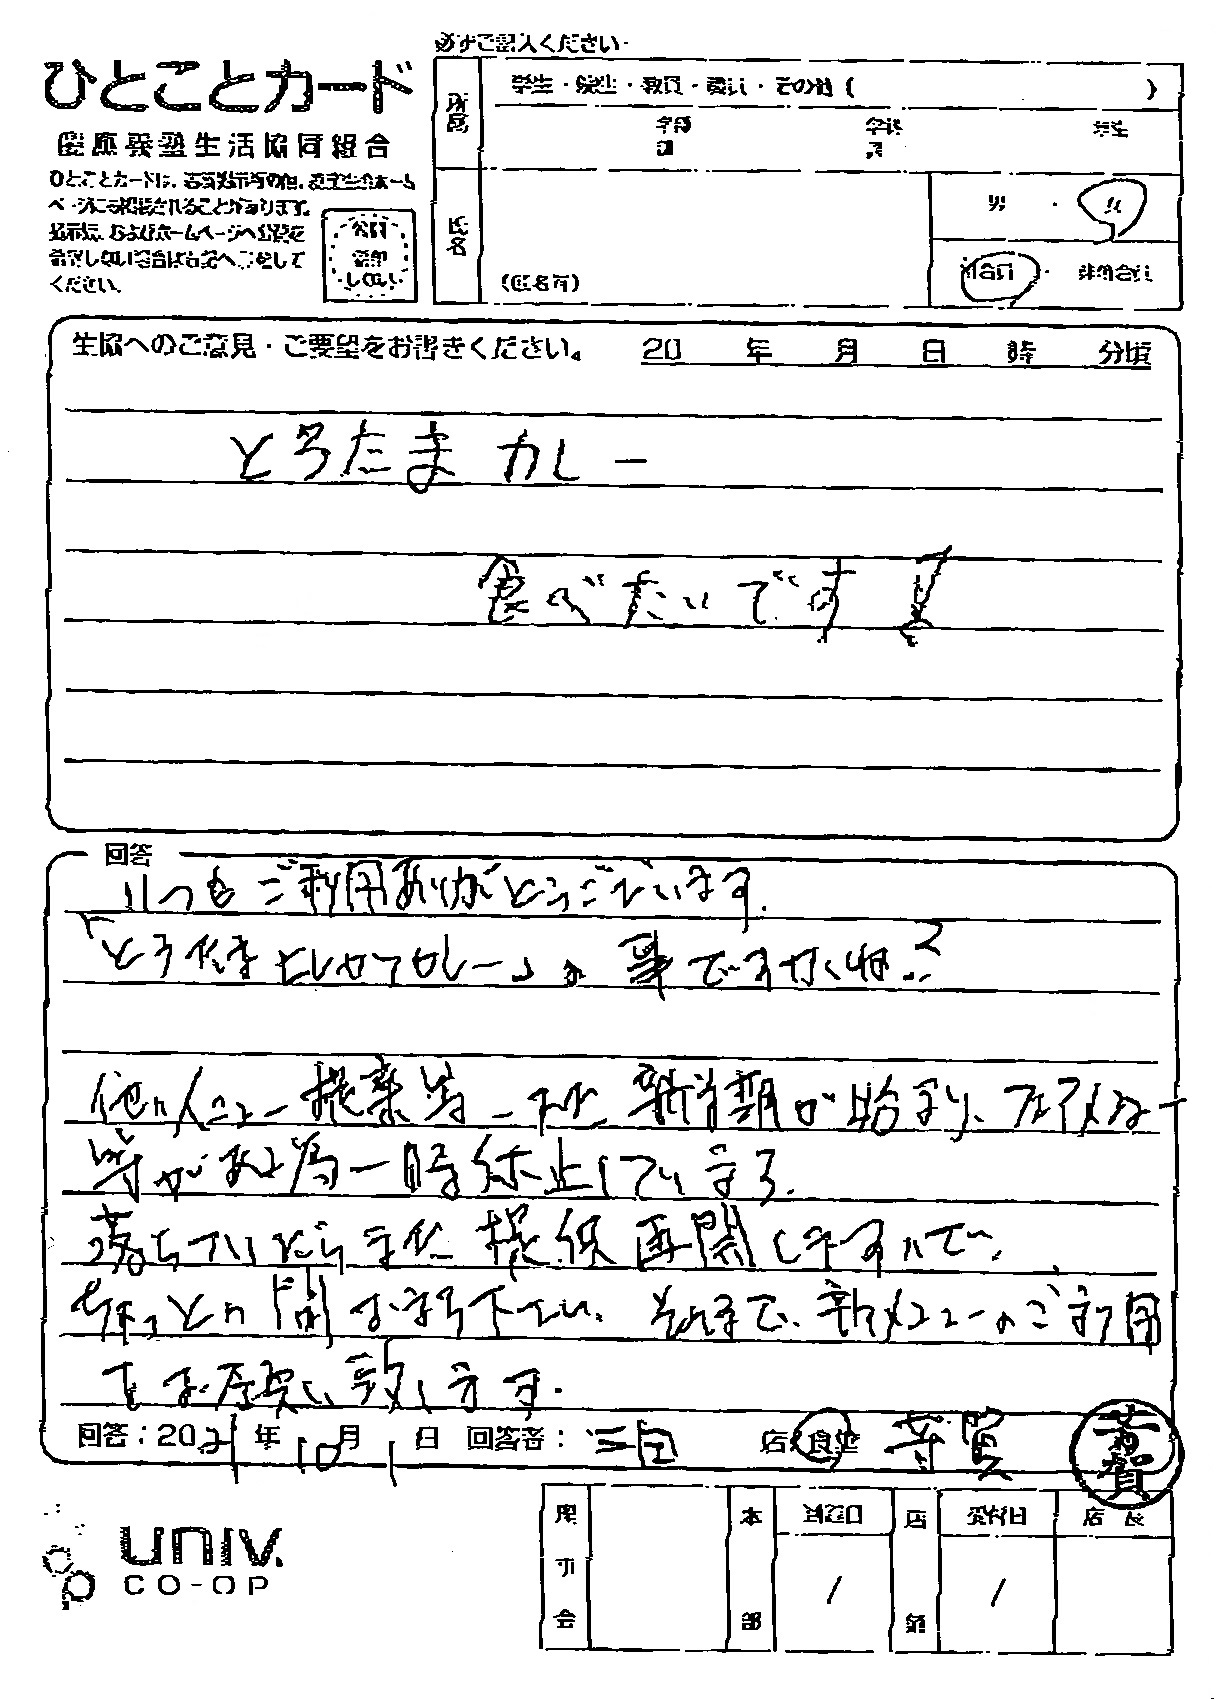 必ずご記入ください
ひとことカード
慶應義塾生活協同組合
所属
学生・院生・教員・職員・その他（ ）
学部
学年
氏名
男・女
（匿名可）
組合員・非組合員
ひとことカードは、
ページにも掲載されることがあります。
掲示板、およびホームページへ公開を
希望しない場合は右記へ○をして
ください。
公開
希望
しない
生協へのご意見・ご要望をお書きください。 20 年 月 日 時 分頃
とろたまカレー
食べたいです！
回答
いつもご利用ありがとうございます。
「とろたまとしゃてカレー」の事ですかね？
他のメニュー提案等、また新学期が始まり、フェアメニュー
等がある為一時休止しています。
落ちついたらまた提供再開しますので、
ちょっとの間お待ち下さい。それまで、新メニューのご利用
をお願い致します。
回答：2021年10月1日 回答者：三田 店・食堂 芳賀
芳賀
univ.
CO-OP
理事会
本部
店舗
受付日
店長